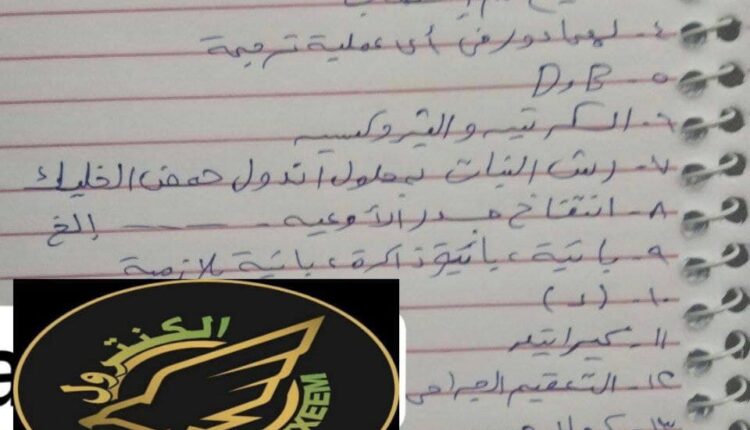 ٤- لهما دور فى أى عملية ترجمة
٥- B و D
٦- الكرتين و الثيروكسين
٧- رش النبات بمحلول أندول حمض الخليك
٨- انتفاخ جدر الأوعية - - - إلخ
٩- بائية ، بائية ذاكرة ، بائية بلازمية
١٠- (د)
١١- كيراتين
١٢- التعقيم الجراحى
١٣-
الكنترول
XEEM
a